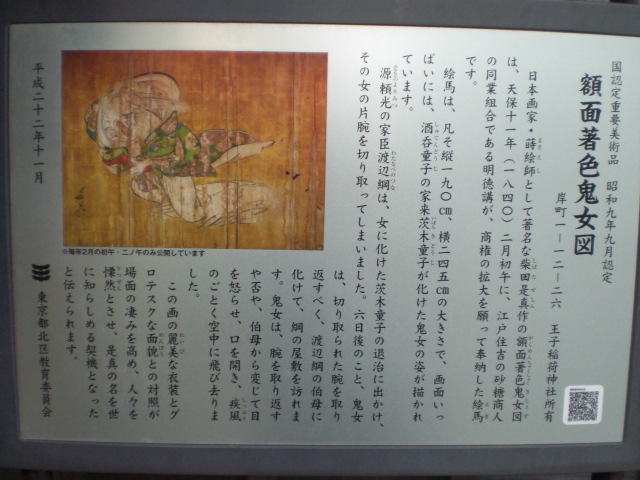 国認定重要美術品　昭和九年九月認定
額面著色鬼女図
岸町一―一二―二六　王子稲荷神社所有
日本画家・蒔絵師として著名な柴田是真作の額面著色鬼女図
は、天保十一年（一八四〇）二月初午に、江戸住吉の砂糖商人
の同業組合である明徳講が、商権の拡大を願って奉納した絵馬
です。
絵馬は、凡そ縦一九〇㎝、横二四五㎝の大きさで、画面いっ
ぱいには、酒呑童子の家来茨木童子が化けた鬼女の姿が描かれ
ています。
源頼光の家臣渡辺綱は、女に化けた茨木童子の退治に出かけ、
その女の片腕を切り取ってしまいました。六日後のこと、鬼女
は、切り取られた腕を取り
返すべく、渡辺綱の伯母に
化けて、綱の屋敷を訪れま
す。鬼女は、腕を取り返す
や否や、伯母から変じて目
を怒らせ、口を開き、疾風
のごとく空中に飛び去りま
した。
この画の麗美な衣装とグ
ロテスクな面貌との対照が
場面の凄みを高め、人々を
慄然とさせ、是真の名を世
に知らしめる契機となった
と伝えられます。
※毎年2月の初午・二ノ午のみ公開しています
平成二十二年十一月
東京都北区教育委員会